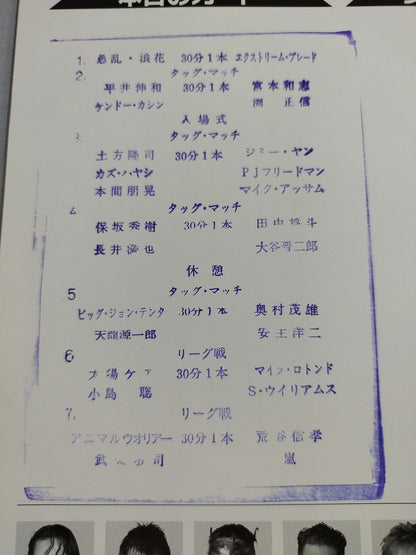 本日のカード
1. 愚乱・浪花 30分1本 エクストリーム・ブレード
2. タッグ・マッチ
平井伸和 30分1本 宮本和志
ケンドー・カシン 渕正信
入場式
タッグ・マッチ
土方隆司 30分1本 ジミー・ヤン
カズ・ハヤシ PJフリードマン
本間朋晃 マイク・アッサム
4 タッグ・マッチ
保坂秀樹 30分1本
長井満也 大谷晋二郎
休憩
5 タッグ・マッチ
ビッグ・ジョン・テンタ 30分1本 奥村茂雄
天龍源一郎 安生洋二
6 リーグ戦
太陽ケア 30分1本 マイク・ロトンド
小島聡 S・ウイリアムス
7. リーグ戦
アニマルウオリアー 30分1本 荒谷信孝
嵐